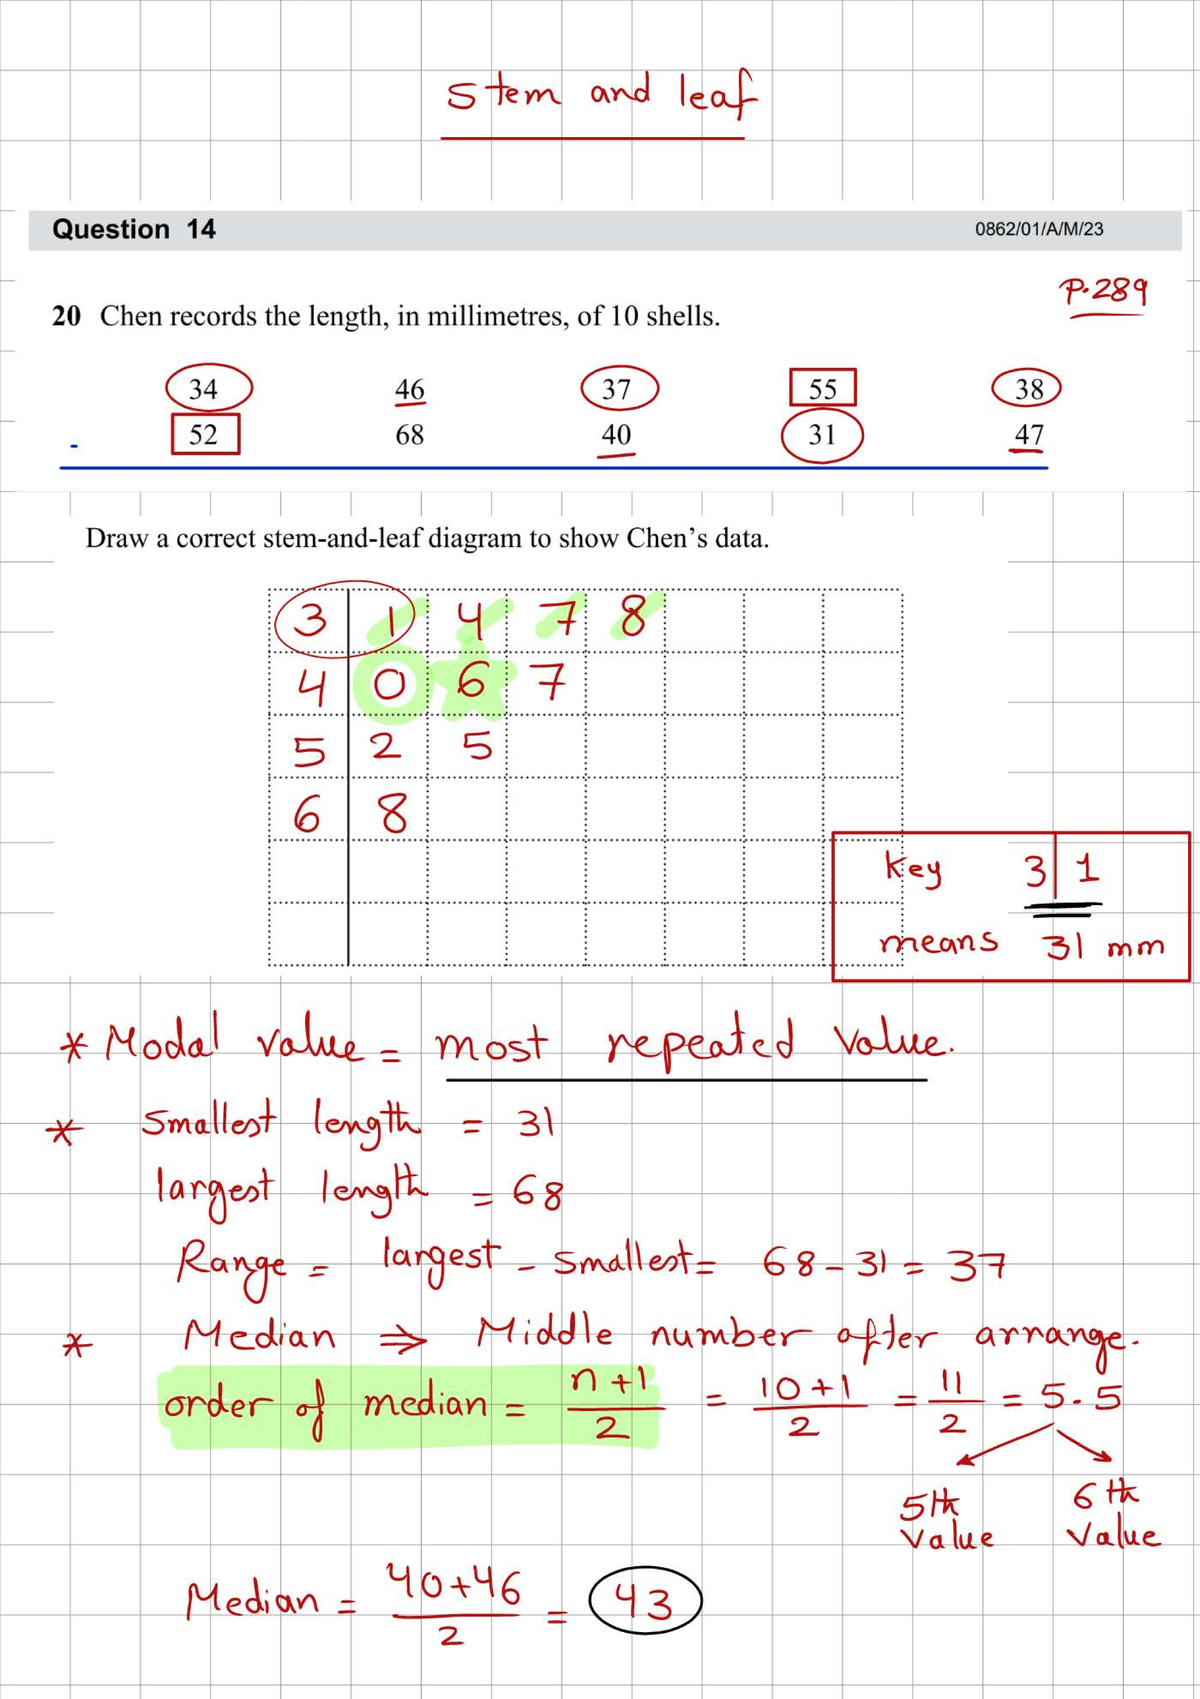 stem and leaf
Question 14 0862/01/A/M/23
P.289
20 Chen records the length, in millimetres, of 10 shells.
34 46 37 55 38
52 68 40 31 47
Draw a correct stem-and-leaf diagram to show Chen's data.
3 | 1 4 7 8
4 | 0 6 7
5 | 2 5
6 | 8
Key 3 | 1
means 31 mm
* Modal value = most repeated value.
* Smallest length = 31
largest length = 68
Range = largest - Smallest = 68 - 31 = 37
* Median ⇒ Middle number after arrange.
order of median = n+1/2 = 10+1/2 = 11/2 = 5.5
5th value 6th value
Median = 40+46/2 = 43